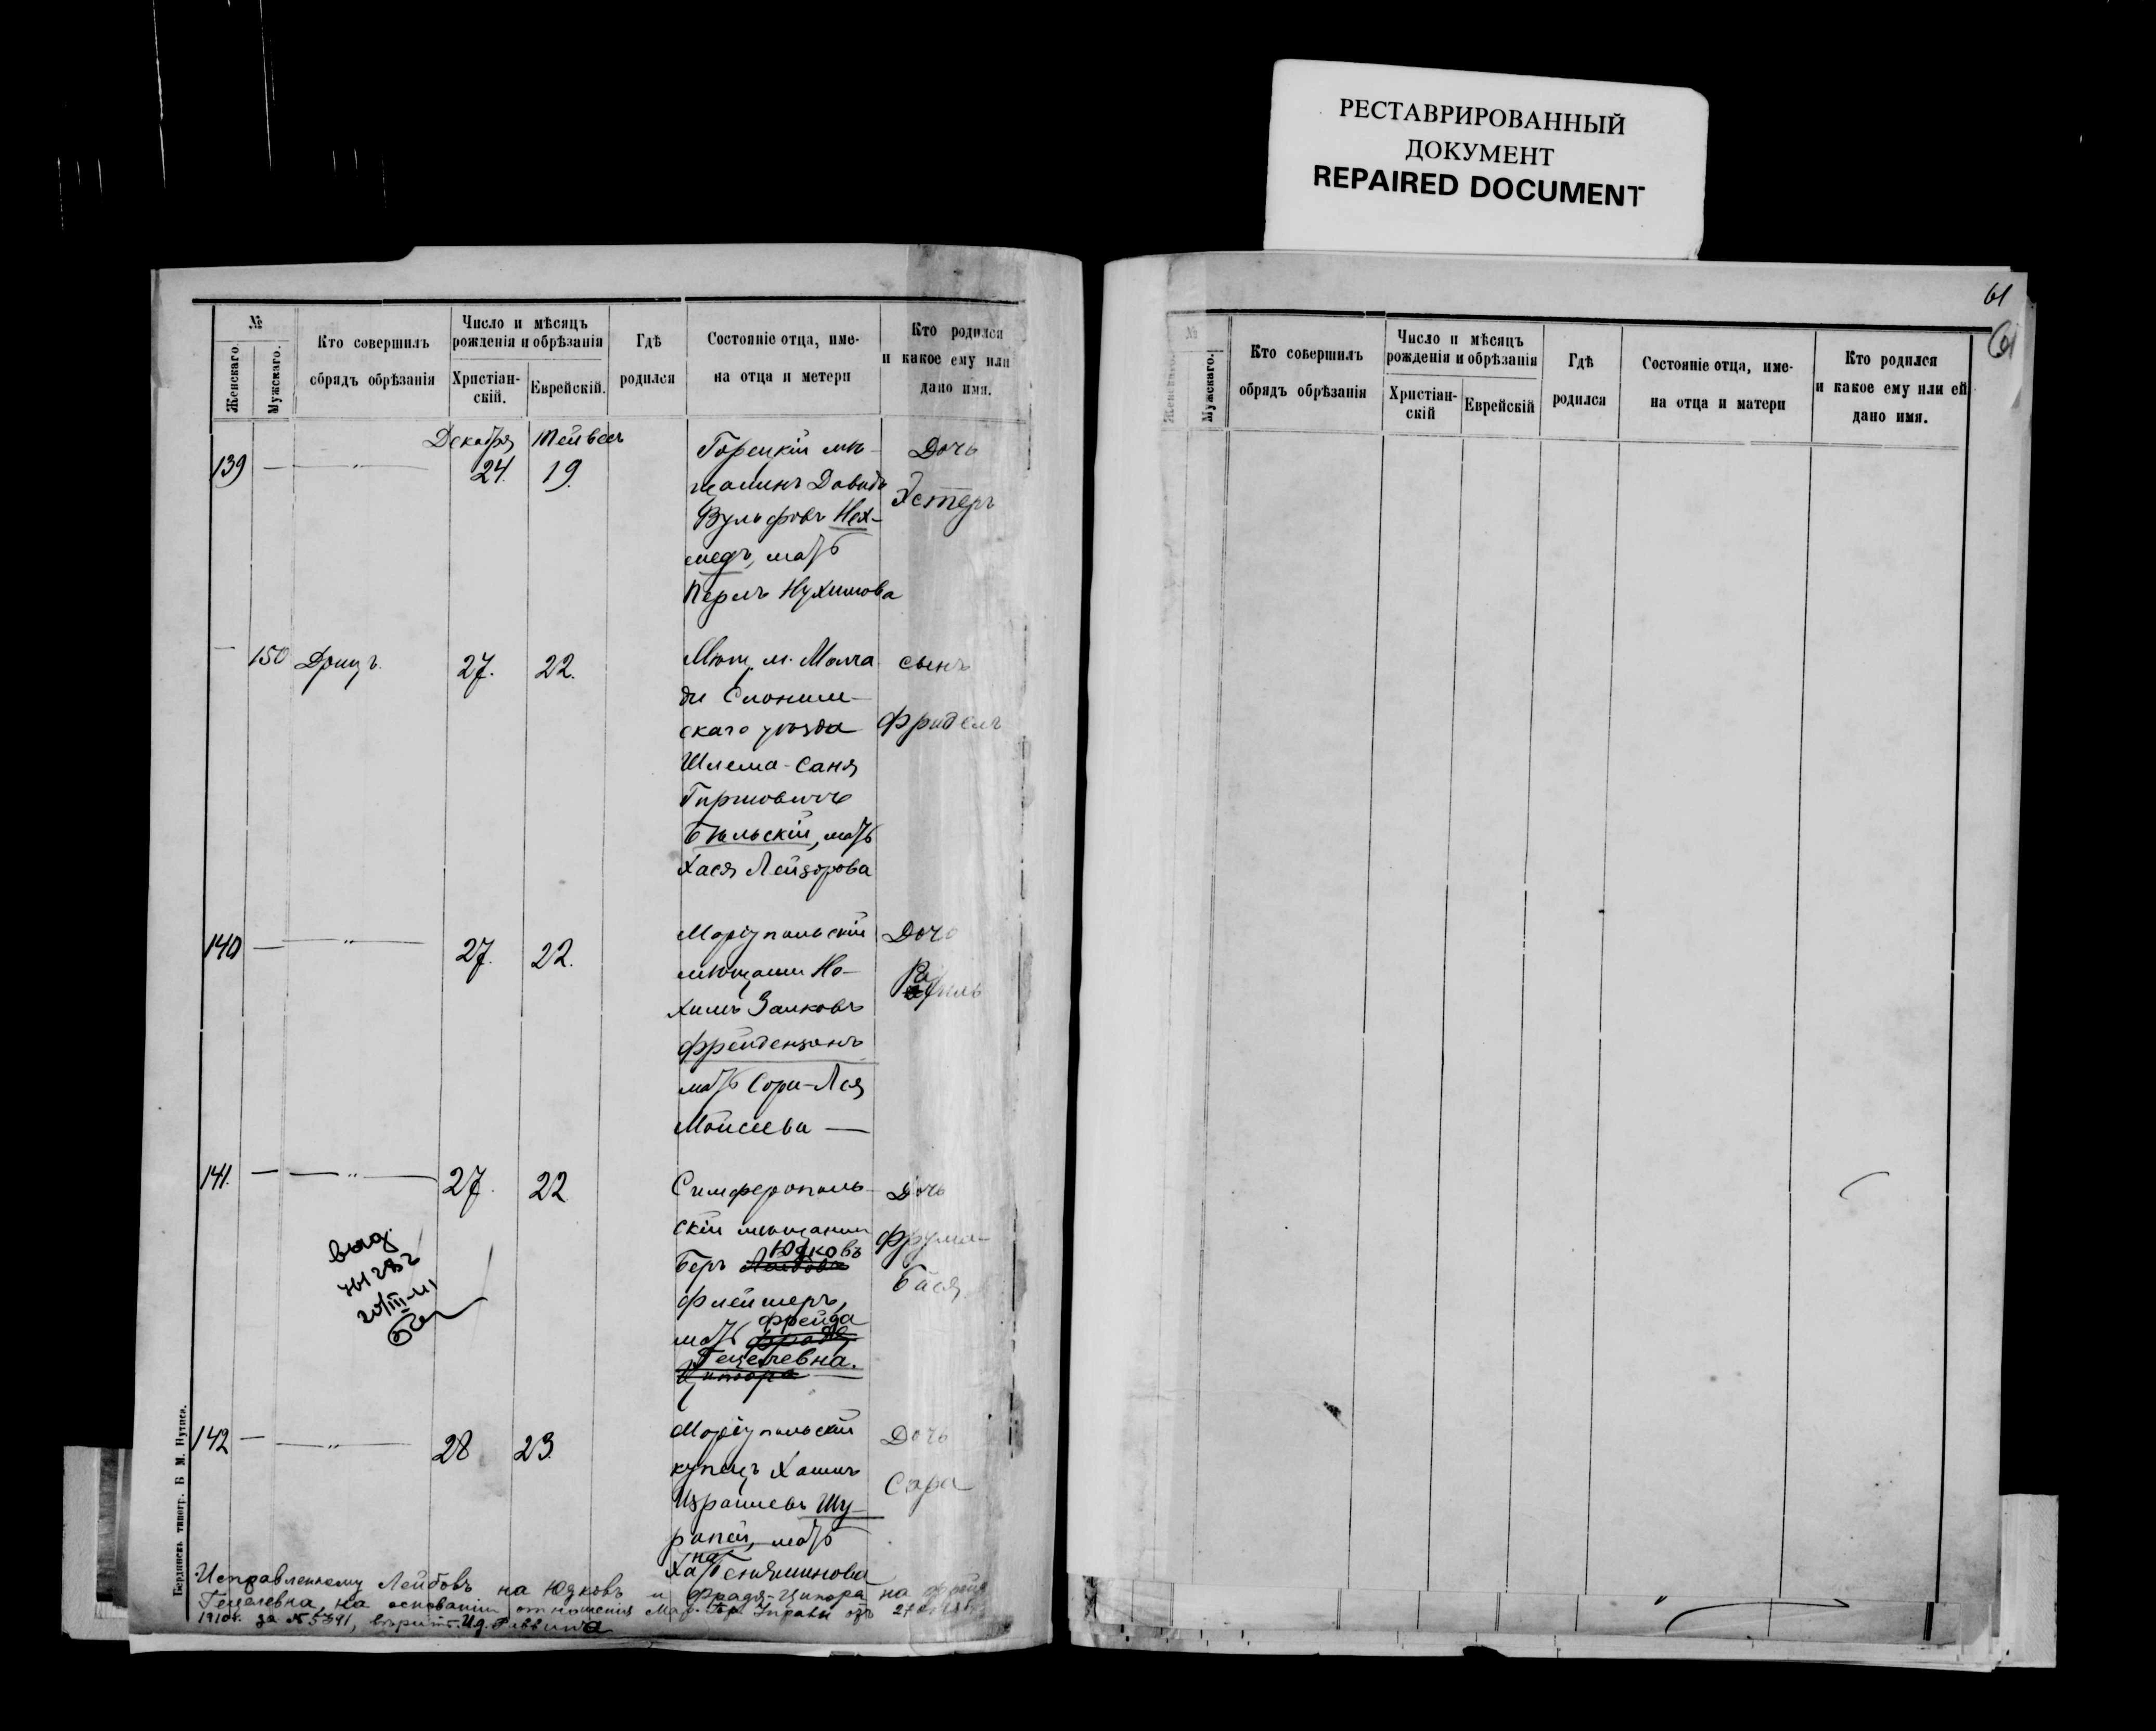 РЕСТАВРИРОВАННЫЙ
ДОКУМЕНТ
REPAIRED DOCUMENT
№
Женскаго.
Мужскаго.
Кто совершилъ
обрядъ обрѣзанія
Число и мѣсяцъ
рожденія и обрѣзанія
Христіан-
скій.
Еврейскій.
Гдѣ
родился
Состояніе отца, име-
на отца и метери
Кто родился
и какое ему или
дано имя.
Декабря Тейвесъ
139 — " — 24. 19.
Горецкій мѣ-
щанинъ Давидъ
Вульфовъ Нех-
медъ, мать
Перль Нухимова
Дочь
Эстеръ
— 150 Дрицъ. 27. 22.
Мѣщ. м. Молча
ди Слоним-
скаго уѣзда
Шлема-Саня
Гиршовичъ
Бѣльскій, мать
Хася Лейзорова
сынъ
Фридель
140 — " — 27. 22.
Маріупольскій
мѣщанин Но-
химъ Залковъ
Фрейдензонъ
мать Сори-Лея
Моисеева —
Дочь
141. — " — 27. 22
Симферополь-
скій мѣщанин
Юдковъ
Беръ Лейбовъ
Флейшеръ,
Фрейда
мать Фрадя
Гецелевна.
Ципора
Дочь
Фрума-
Бася
выд.
20/III-11
142 — " — 28 23.
Маріупольскій
купецъ Хаимъ
Израилевъ Шу-
рапей, мать
на
Ха Беняминова
Дочь
Сара
Исправленному Лейбовъ на Юдковъ и Фрадя-Ципора на Фрейда
Гецелевна, на основаніи отношенія Мар. Гор. Управы отъ 27
1910г. за № 5391,
Раввина
Бердянскъ типогр. Б М.
61
61
№
Женскаго.
Мужскаго.
Кто совершилъ
обрядъ обрѣзанія
Число и мѣсяцъ
рожденія и обрѣзанія
Христіан-
скій
Еврейскій
Гдѣ
родился
Состояніе отца, име-
на отца и матери
Кто родился
и какое ему или ей
дано имя.